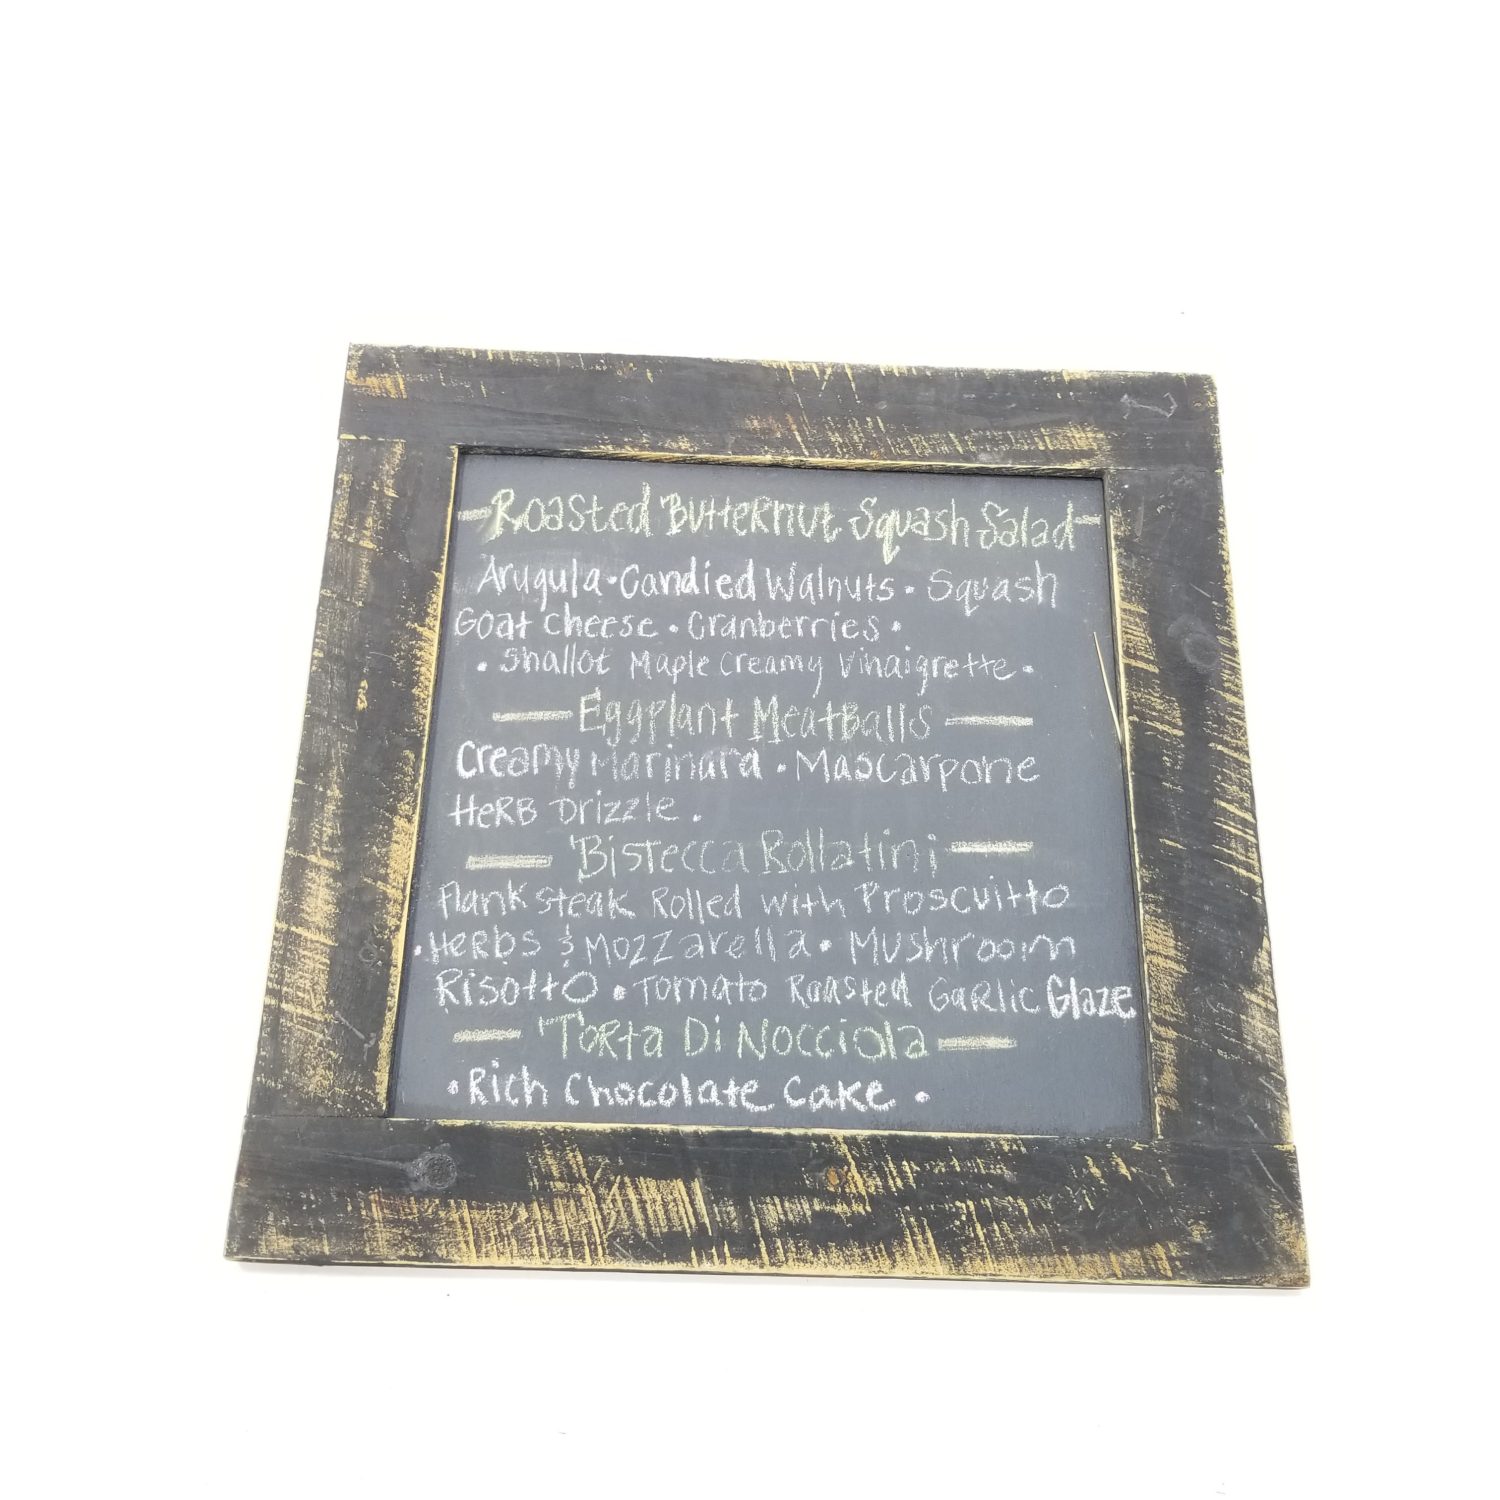 - Roasted Butternut Squash Salad -
Arugula • Candied Walnuts • Squash
Goat cheese • Cranberries •
• Shallot Maple Creamy Vinaigrette •
— Eggplant MeatBalls —
Creamy Marinara • Mascarpone
HeRB Drizzle .
— Bistecca Rollatini —
Flank steak Rolled with Proscuitto
• HeRbs & Mozzarella • Mushroom
Risotto • Tomato Roasted GaRlic Glaze
— Torta Di Nocciola —
• Rich Chocolate Cake •